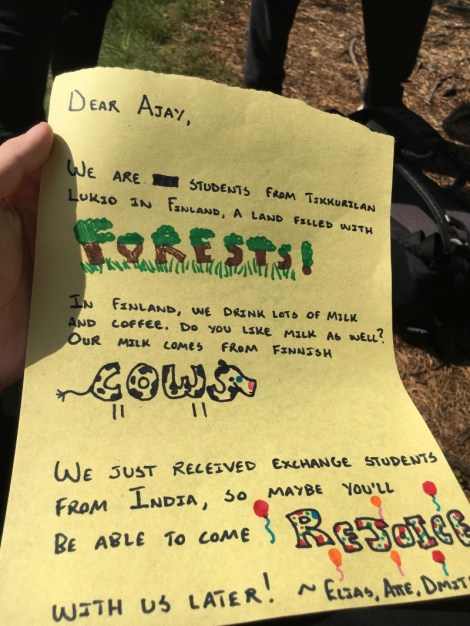 DEAR AJAY,
WE ARE STUDENTS FROM TIKKURILAN
LUKIO IN FINLAND, A LAND FILLED WITH
FORESTS!
IN FINLAND, WE DRINK LOTS OF MILK
AND COFFEE. DO YOU LIKE MILK AS WELL?
OUR MILK COMES FROM FINNISH
COWS
WE JUST RECEIVED EXCHANGE STUDENTS
FROM INDIA, SO MAYBE YOU'LL
BE ABLE TO COME REJOICE
WITH US LATER! ~ ELIAS, ATTE,